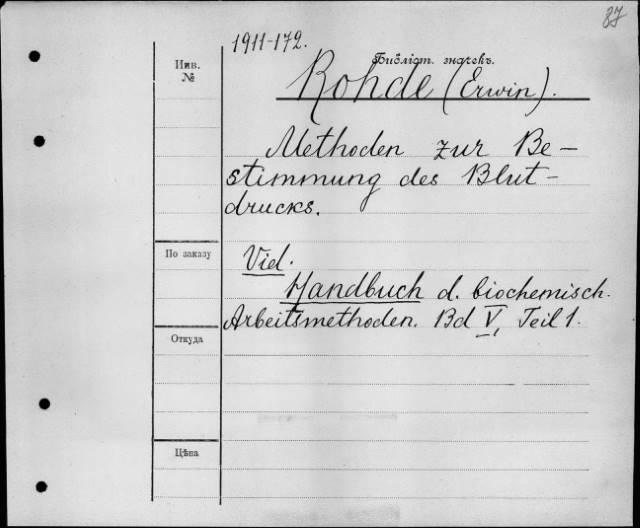 87
1911-172.
Библіот. значекъ.
Инв.
№
Rohde (Erwin).
Methoden zur Be-
stimmung des Blut-
drucks.
По заказу
Vid.
Handbuch d. biochemisch.
Arbeitsmethoden. Bd V, Teil 1.
Откуда
Цѣна